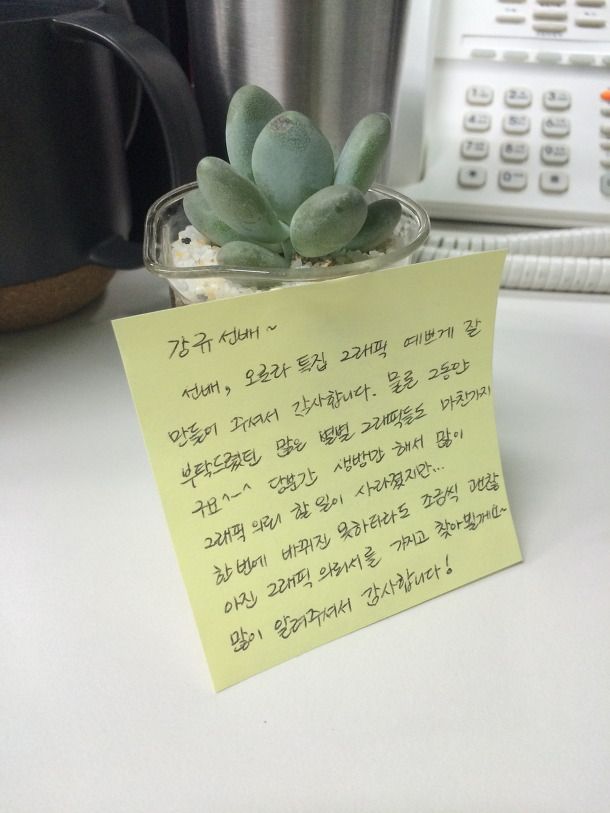 강규 선배~
선배, 오로라 특집 그래픽 예쁘게 잘
만들어 주셔서 감사합니다. 물론 그동안
부탁드렸던 많은 별별 그래픽들도 마찬가지
구요^-^ 당분간 생방만 해서 많이
그래픽 의뢰 할 일이 사라졌지만...
한번에 바뀌진 못하더라도 조금씩 괜찮
아진 그래픽 의뢰서를 가지고 찾아뵐게요~
많이 알려주셔서 감사합니다!
1 2 3
4 5 6
7 8 9
* 0 #